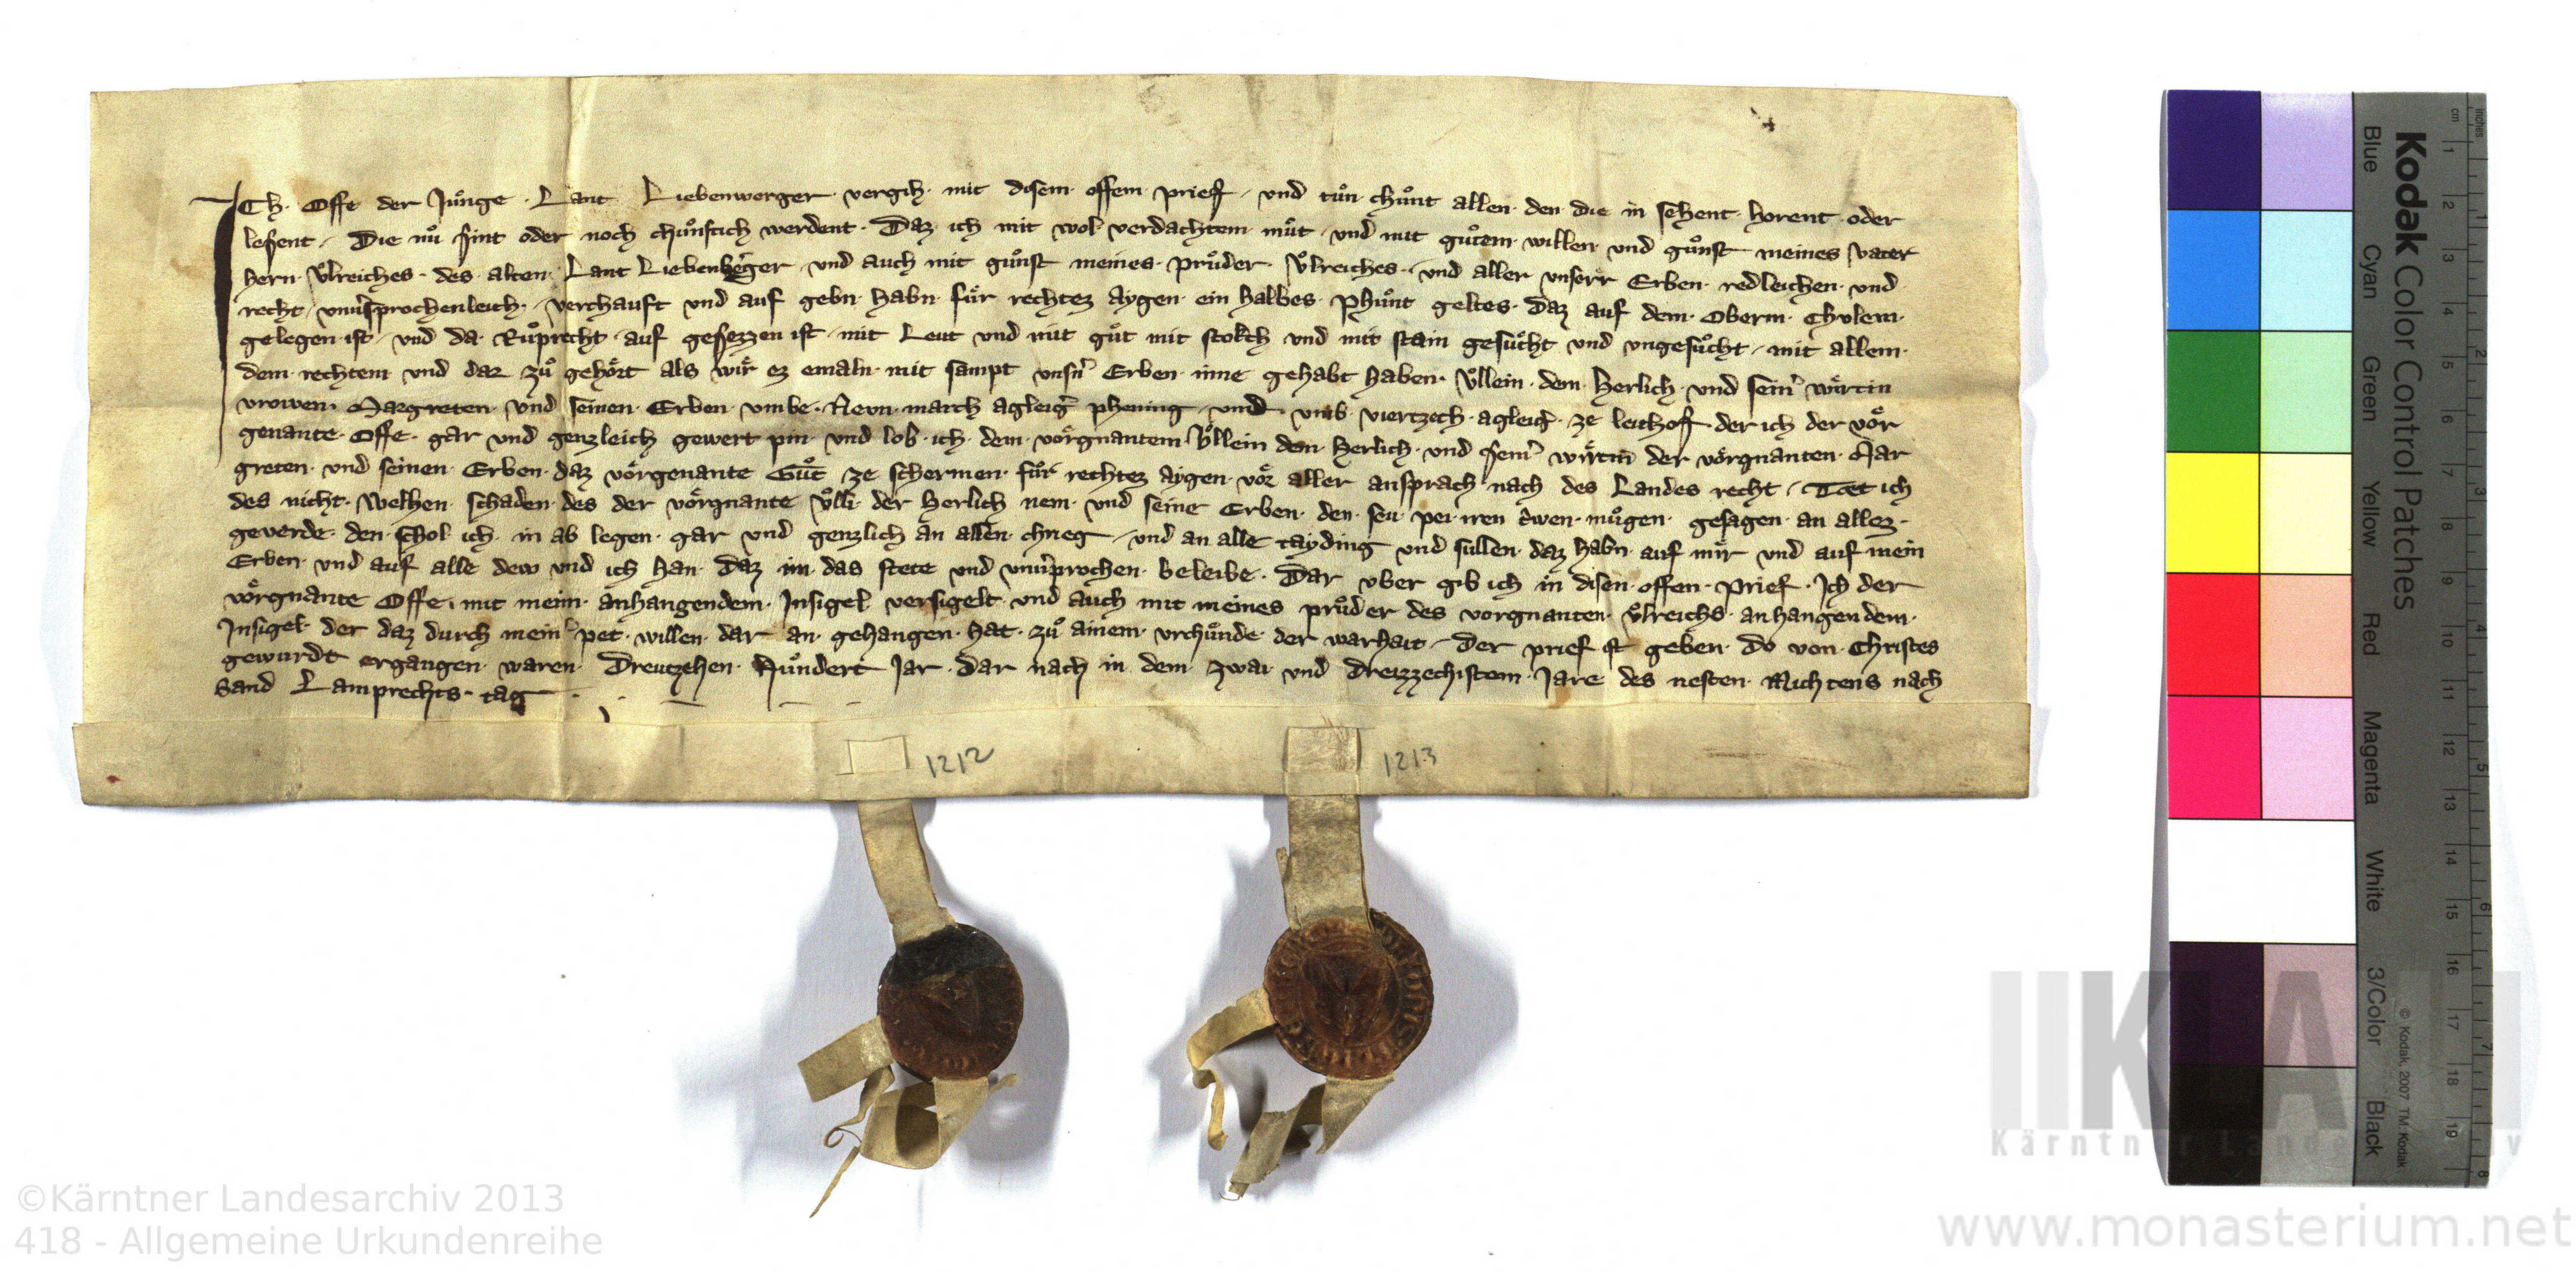 Ich Offe der Junͦge Lant Liebenwerger vergih mit disem offem prief und tuͦn chuͦnt allen den die in sehent horent oder
lesent Die nuͦ sint oder noch chuͦnftich werdent Daz ich mit wol verdachtem muͦt und mit guͦtem willen und guͦnst meines vater
hern Uͦlreiches des alten Lant Liebenberger und auch mit guͦnst meines pruͦder Uͦlreiches und aller unserr Erben redleichen und
recht unversprochenleich verchauft und auf gebn habn fuͤr rechtez aygen ein halbes phuͦnt geltes daz auf dem Oberm Cholem
gelegen ist und da Ruͦprecht auf gesezzen ist mit Leut und mit guͦt mit stokch und mit stain gesuͦcht und ungesuͦcht mit allem
dem rechtem und dar zuͦ gehoͤrt als wiͤr ez emaln mit sampt unsern Erben inne gehabt haben Uͦllein dem Herlich und seinr wuͤrtin
vrowen Margreten und seinen Erben umbe Nevn march agleigr phening und umb viertzech agleigr ze leichoff der ich der voͤr
genante Offe gar und genzleich gewert pin und lob ich dem voͤrgnantem Uͦllein dem Herlich und seinr wuͤrtin der voͤrgnanten Mar
greten und seinen Erben daz voͤrgenante Guͦt ze schermen fuͤr rechtez aygen voͤr aller ansprach nach des Landes recht Taet ich
des nicht Welhen schaden des der voͤrgnante Uͦlli der Herlich nem und seine Erben den seu pei iren trͤwen muͦgen gesagen an allez
geverde den schol ich in ab legen gar und genzlich an allen chrieg und an alle tayding und sullen daz habn auf miͤr und auf mein
Erben und auf alle dew und ich han Daz im das stete und unversprochen beleibe Dar uber gib ich in disen offen prief Ich der
voͤrgnante Offe mit meim anhangendem Insigel versigelt und auch mit meines pruͦder des vorgnanten Uͦlreichs anhangendem
Insigel der daz durch meinr pet willen dar an gehangen hat zuͦ ainem urchuͦnde der warhait Der prief ist geben do von Christes
gewurdt ergangen waren Dreutzehen Huͦndert Jar dar nach in dem zwai und dreizzechistem Jare des nesten Michtens nach
Sand Lamprechts tag
1212 1213
Kodak Color Control Patches
Blue Cyan Green Yellow Red Magenta White 3/Color Black
© Kodak, 2007 TM: Kodak
cm 1 2 3 4 5 6 7 8 9 10 11 12 13 14 15 16 17 18 19
inches 1 2 3 4 5 6 7 8
Kärntner Landesarchiv
©Kärntner Landesarchiv 2013
418 - Allgemeine Urkundenreihe
www.monasterium.net